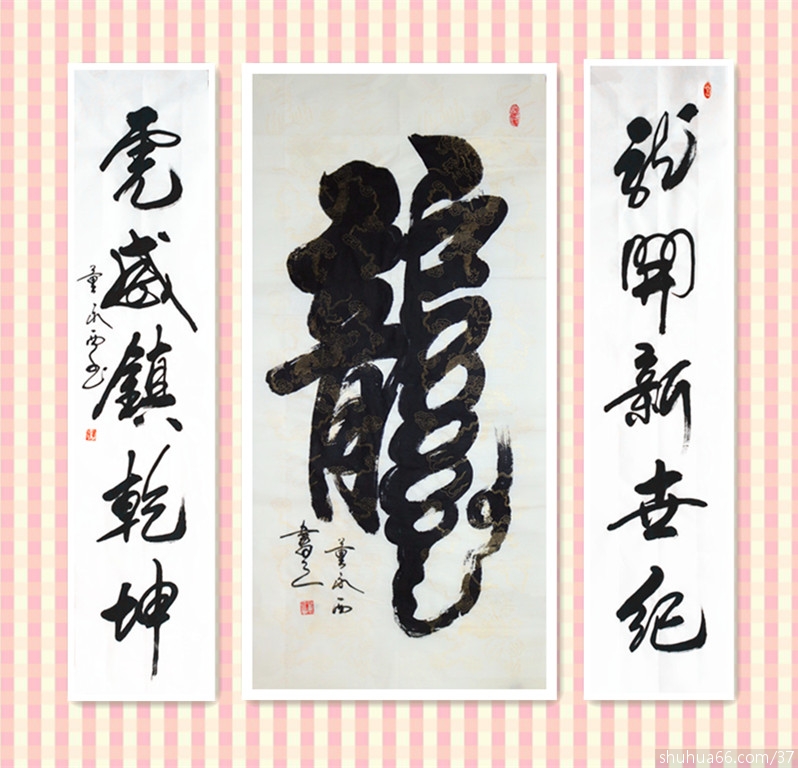 龍開新世紀
龍
董永西
書之
虎威鎮乾坤
董永西书
shuhua66.com/37